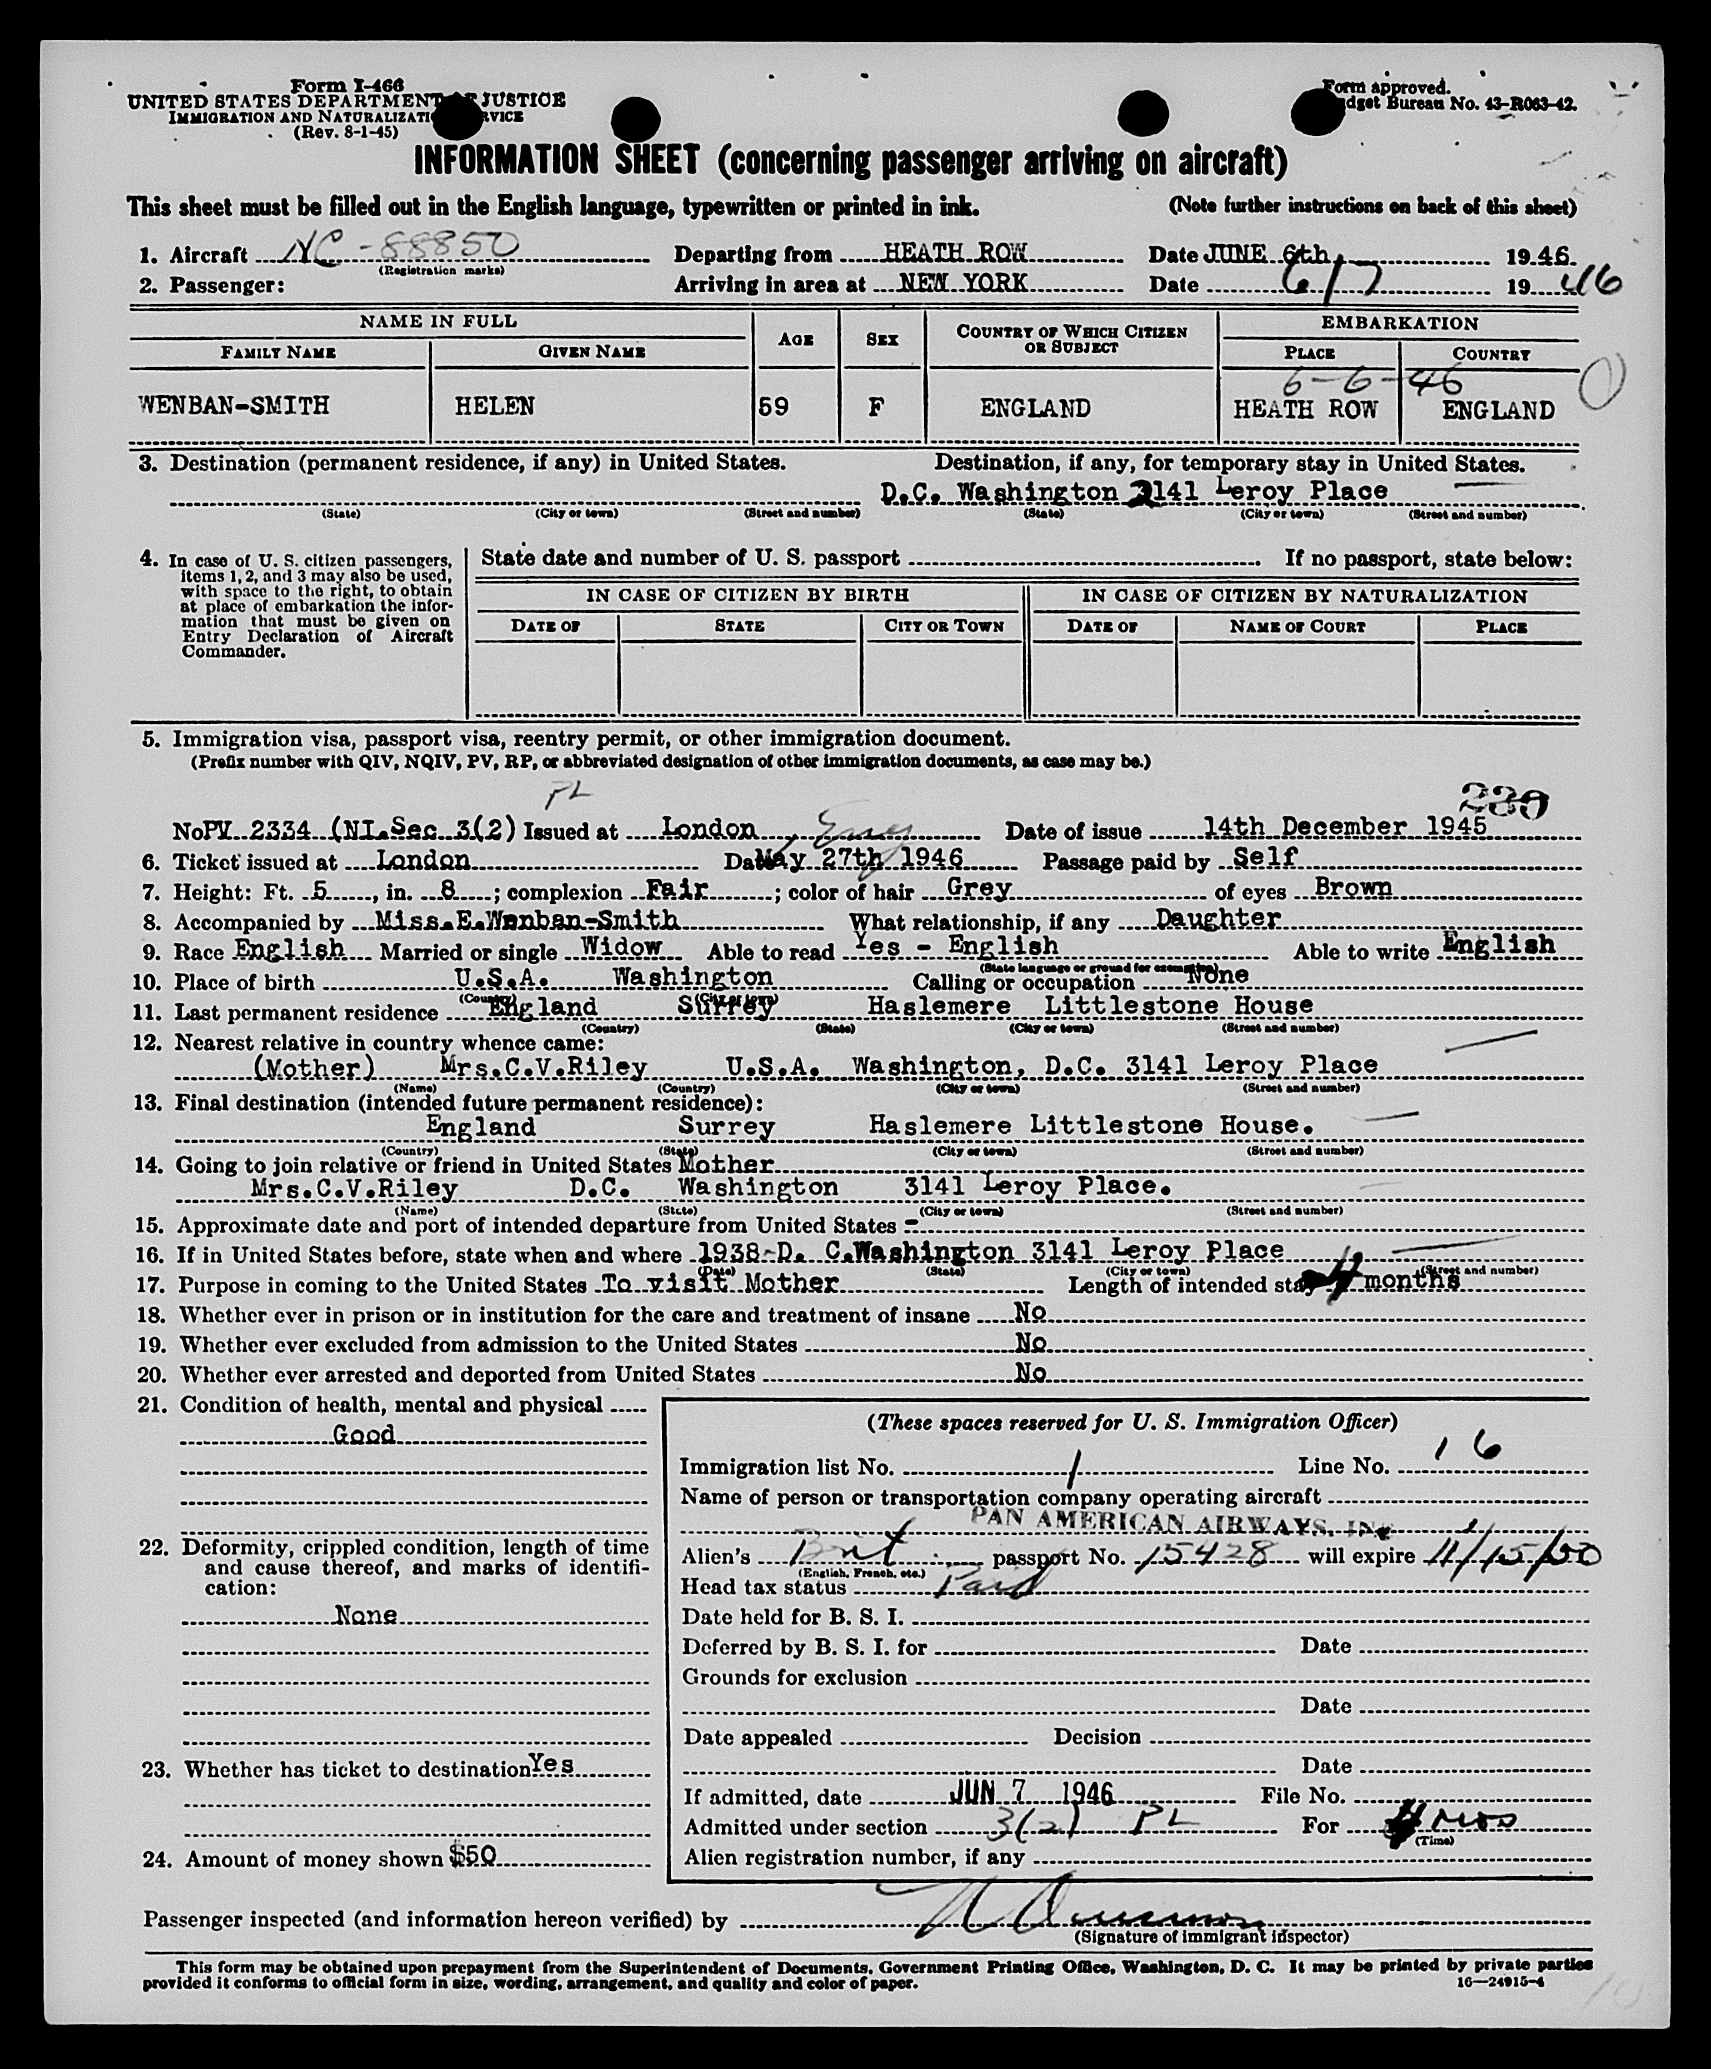 Form I-466
UNITED STATES DEPARTMENT OF JUSTICE
IMMIGRATION AND NATURALIZATION SERVICE
(Rev. 8-1-45)
Form approved.
Budget Bureau No. 43-R063-42.
INFORMATION SHEET (concerning passenger arriving on aircraft)
This sheet must be filled out in the English language, typewritten or printed in ink. (Note further instructions on back of this sheet)
1. Aircraft NC-88850 Departing from HEATH ROW Date JUNE 6th, 1946.
(Registration marks)
2. Passenger: Arriving in area at NEW YORK Date 6/7 1946
NAME IN FULL AGE SEX COUNTRY OF WHICH CITIZEN OR SUBJECT EMBARKATION
FAMILY NAME GIVEN NAME PLACE COUNTRY
6-6-46
WENBAN-SMITH HELEN 59 F ENGLAND HEATH ROW ENGLAND
3. Destination (permanent residence, if any) in United States. Destination, if any, for temporary stay in United States.
D.C. Washington 3141 Leroy Place
(State) (City or town) (Street and number) (State) (City or town) (Street and number)
4. In case of U. S. citizen passengers, items 1, 2, and 3 may also be used, with space to the right, to obtain at place of embarkation the information that must be given on Entry Declaration of Aircraft Commander.
State date and number of U. S. passport . If no passport, state below:
IN CASE OF CITIZEN BY BIRTH IN CASE OF CITIZEN BY NATURALIZATION
DATE OF STATE CITY OR TOWN DATE OF NAME OF COURT PLACE
5. Immigration visa, passport visa, reentry permit, or other immigration document.
(Prefix number with QIV, NQIV, PV, RP, or abbreviated designation of other immigration documents, as case may be.)
PL 230
No PV 2334 (NI.Sec 3(2) Issued at London Date of issue 14th December 1945
6. Ticket issued at London Date May 27th 1946 Passage paid by Self
7. Height: Ft. 5, in. 8; complexion Fair; color of hair Grey of eyes Brown
8. Accompanied by Miss.E.Wenban-Smith What relationship, if any Daughter
9. Race English Married or single Widow Able to read Yes - English Able to write English
(State language or ground for exemption)
10. Place of birth U.S.A. Washington Calling or occupation None
(Country) (City or town)
11. Last permanent residence England Surrey Haslemere Littlestone House
(Country) (State) (City or town) (Street and number)
12. Nearest relative in country whence came:
(Mother) Mrs.C.V.Riley U.S.A. Washington, D.C. 3141 Leroy Place
(Name) (Country) (City or town) (Street and number)
13. Final destination (intended future permanent residence):
England Surrey Haslemere Littlestone House.
(Country) (State) (City or town) (Street and number)
14. Going to join relative or friend in United States Mother
Mrs.C.V.Riley D.C. Washington 3141 Leroy Place.
(Name) (State) (City or town) (Street and number)
15. Approximate date and port of intended departure from United States -
16. If in United States before, state when and where 1938-D. C.Washington 3141 Leroy Place
(Date) (State) (City or town) (Street and number)
17. Purpose in coming to the United States To visit Mother Length of intended stay 4 months
18. Whether ever in prison or in institution for the care and treatment of insane No
19. Whether ever excluded from admission to the United States No
20. Whether ever arrested and deported from United States No
21. Condition of health, mental and physical
Good
22. Deformity, crippled condition, length of time and cause thereof, and marks of identification:
None
23. Whether has ticket to destination Yes
24. Amount of money shown $50
(These spaces reserved for U. S. Immigration Officer)
Immigration list No. 1 Line No. 16
Name of person or transportation company operating aircraft
PAN AMERICAN AIRWAYS, INC
Alien's Brit passport No. 15428 will expire 11/15/50
(English, French, etc.)
Head tax status Paid
Date held for B. S. I.
Deferred by B. S. I. for Date
Grounds for exclusion
Date
Date appealed Decision
Date
If admitted, date JUN 7 1946 File No.
Admitted under section 3(2) PL For 4 mos
(Time)
Alien registration number, if any
Passenger inspected (and information hereon verified) by
(Signature of immigrant inspector)
This form may be obtained upon prepayment from the Superintendent of Documents, Government Printing Office, Washington, D. C. It may be printed by private parties
provided it conforms to official form in size, wording, arrangement, and quality and color of paper. 16—24915-4